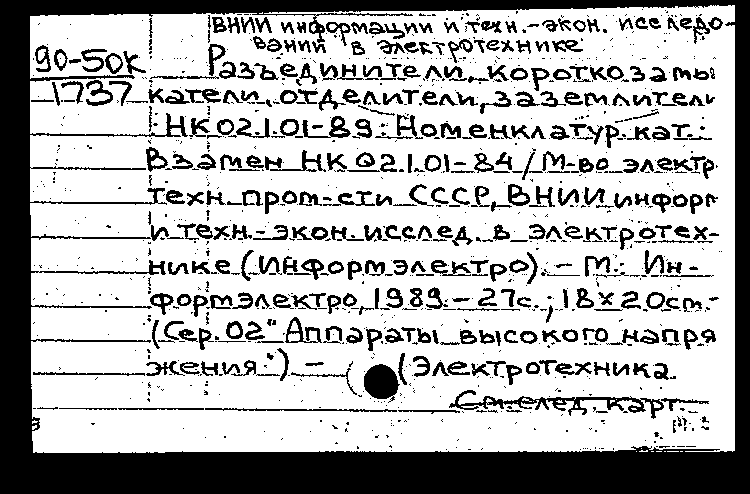 ВНИИ информации и техн.-экон. исследо-
ваний в электротехнике
90-50К
1737
Разъединители, короткозамы
катели, отделители, заземлители
: НК 02.1.01-89: Номенклатур. кат.:
Взамен НК 02.1.01-84 / М-во электр
техн. пром-сти СССР, ВНИИ информ
и техн.-экон. исслед. в электротех-
нике (Информэлектро). – М.: Ин-
формэлектро, 1989. – 27с.; 18×20cm.-
(Сер. 02 "Аппараты высокого напря
жения") – (Электротехника
См. след. карт.